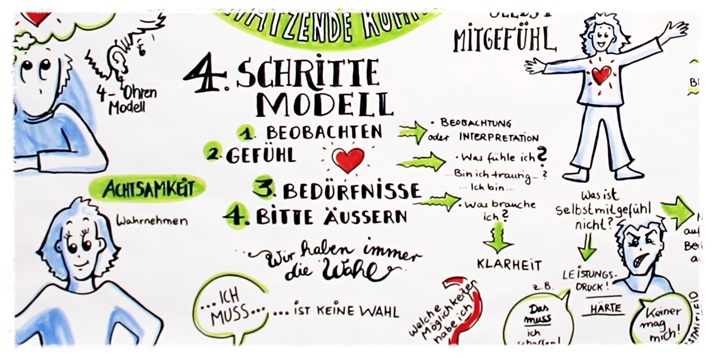 4-Ohren
Modell
MITGEFÜHL
4. SCHRITTE
MODELL
1. BEOBACHTEN
2. GEFÜHL
3. BEDÜRFNISSE
4. BITTE ÄUSSERN
· BEOBACHTUNG
oder INTERPRETATION
· Was fühle ich?
Bin ich traurig...?
... Ich bin...
· Was brauche
ich?
KLARHEIT
ACHTSAMKEIT
Wahrnehmen
Wir haben immer
die Wahl
...ICH
MUSS...
... IST KEINE WAHL
Welche
Möglichkeiten
habe ich
Was ist
Selbstmitgefühl
nicht?
LEISTUNGS-
DRUCK!
HÄRTE
z.B.
Das
muss
ich
Keiner
mag
mich!